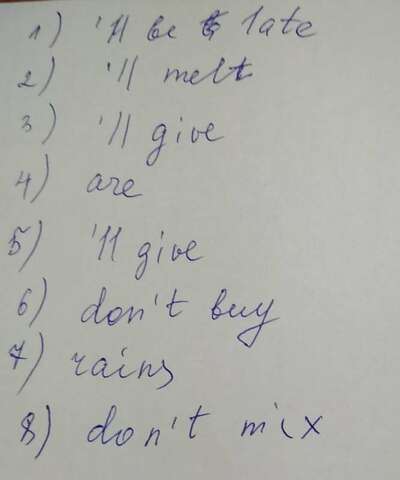 1) 'll be late
2) 'll melt
3) 'll give
4) are
5) 'll give
6) don't buy
7) rains
8) don't mix